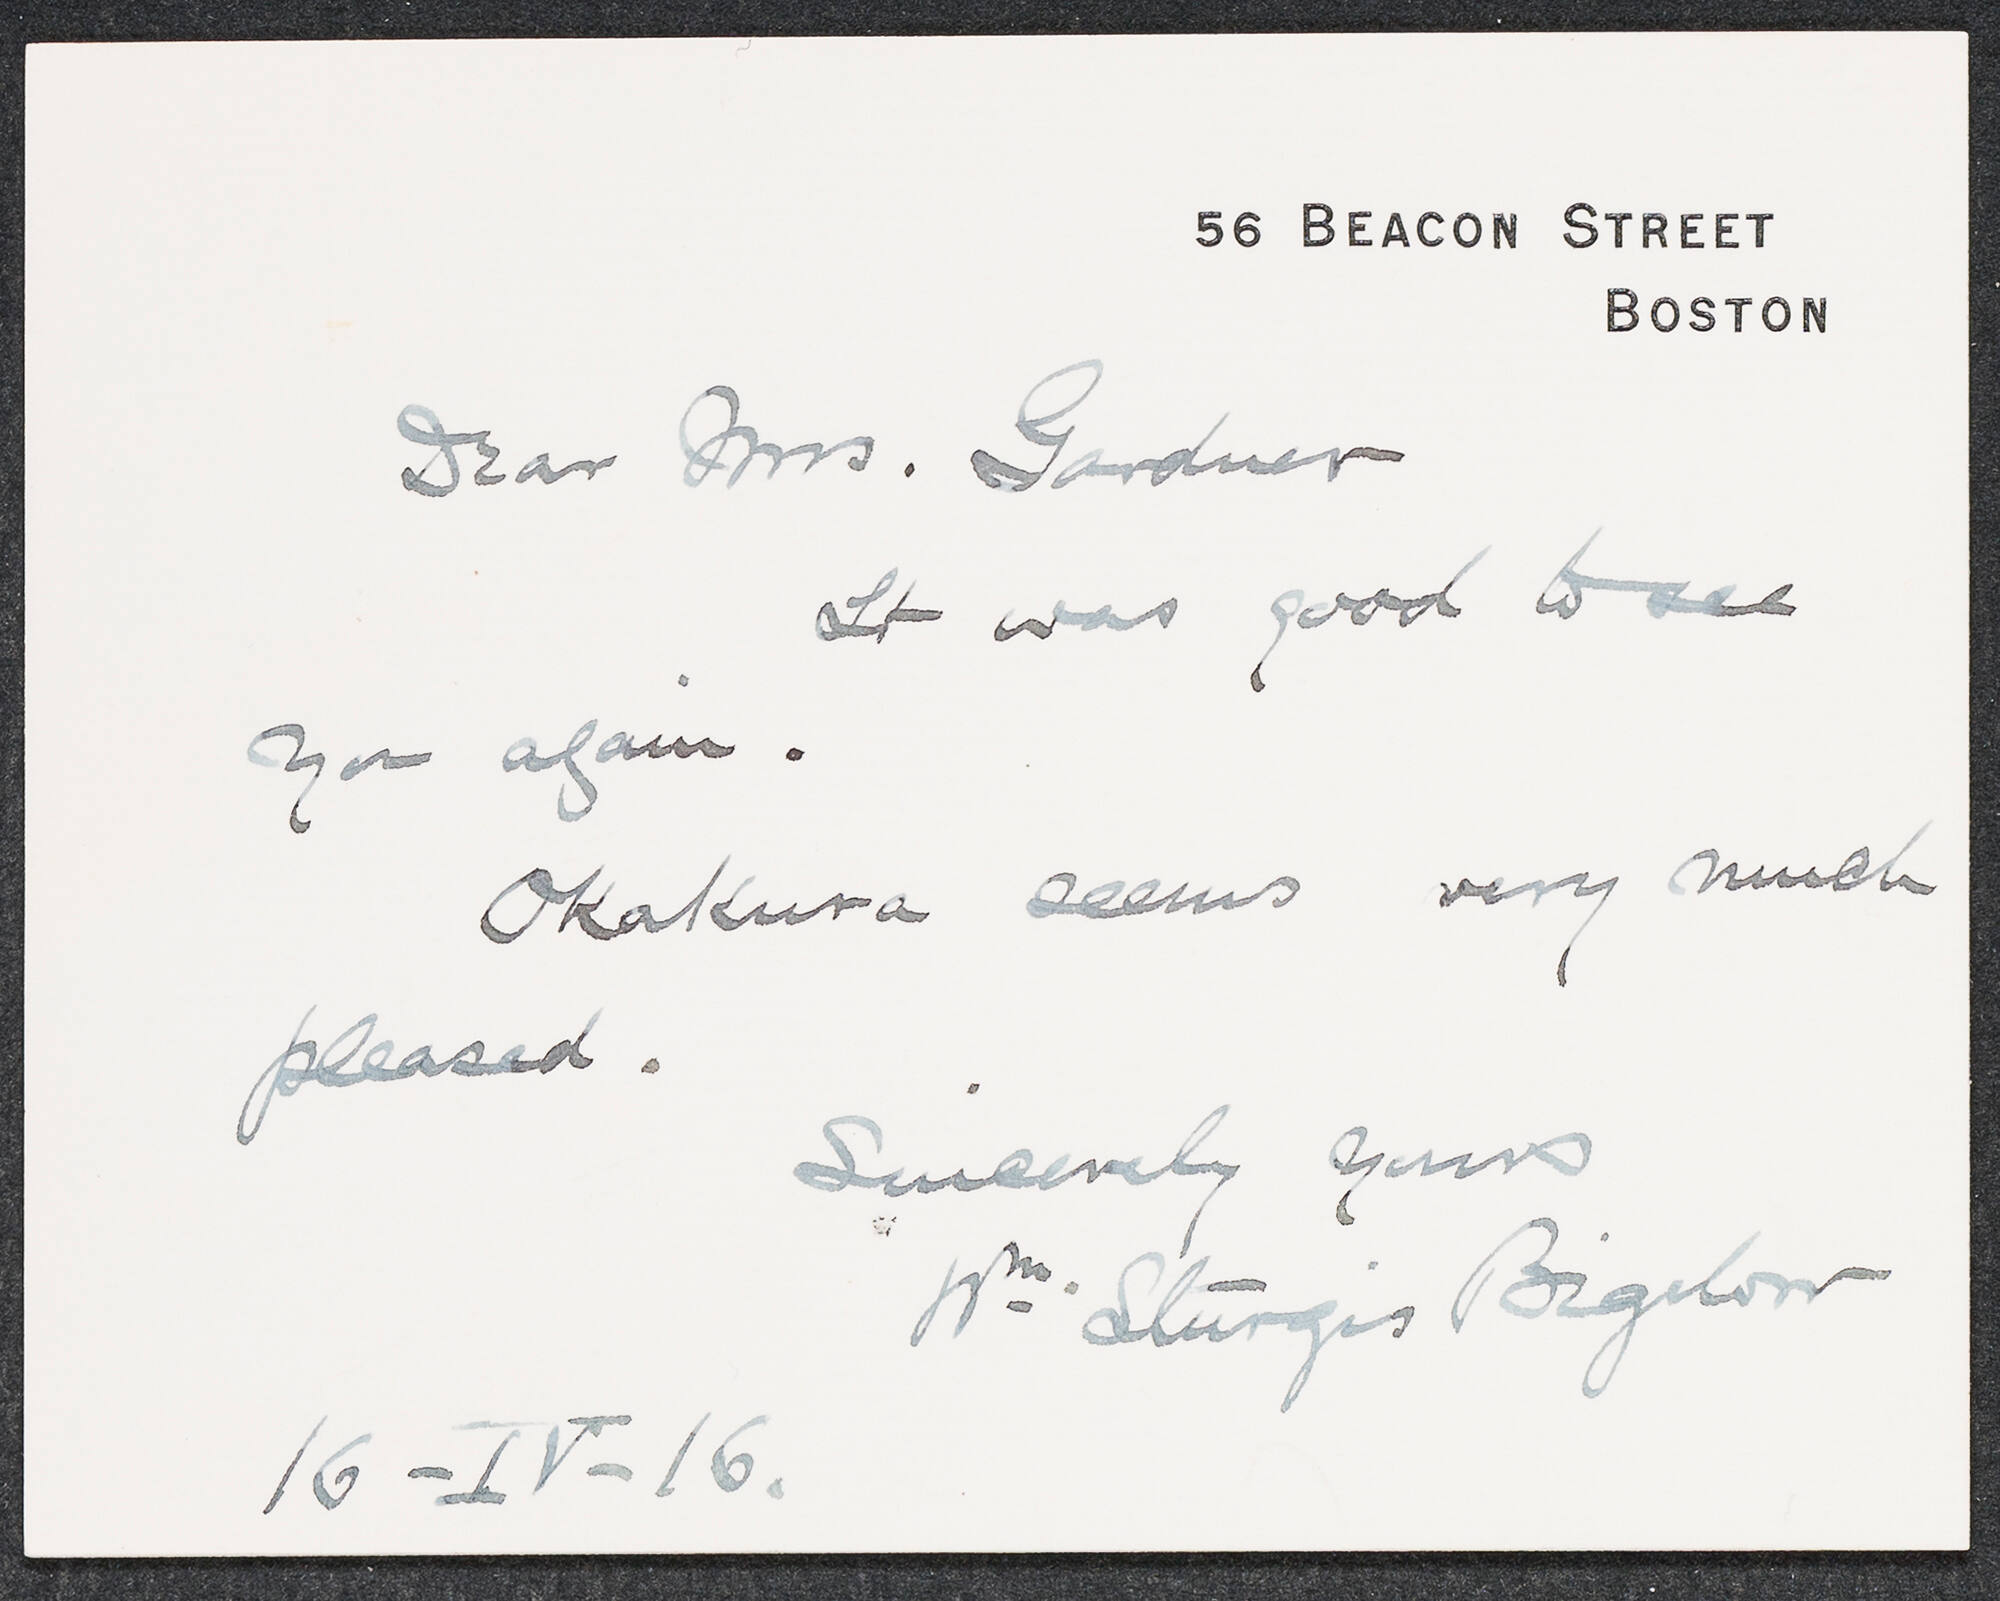 56 BEACON STREET
BOSTON
Dear Mrs. Gardner
It was good to see
you again.
Okakura seems very much
pleased.
Sincerely yours
Wm. Sturgis Bigelow
16-IV-16.